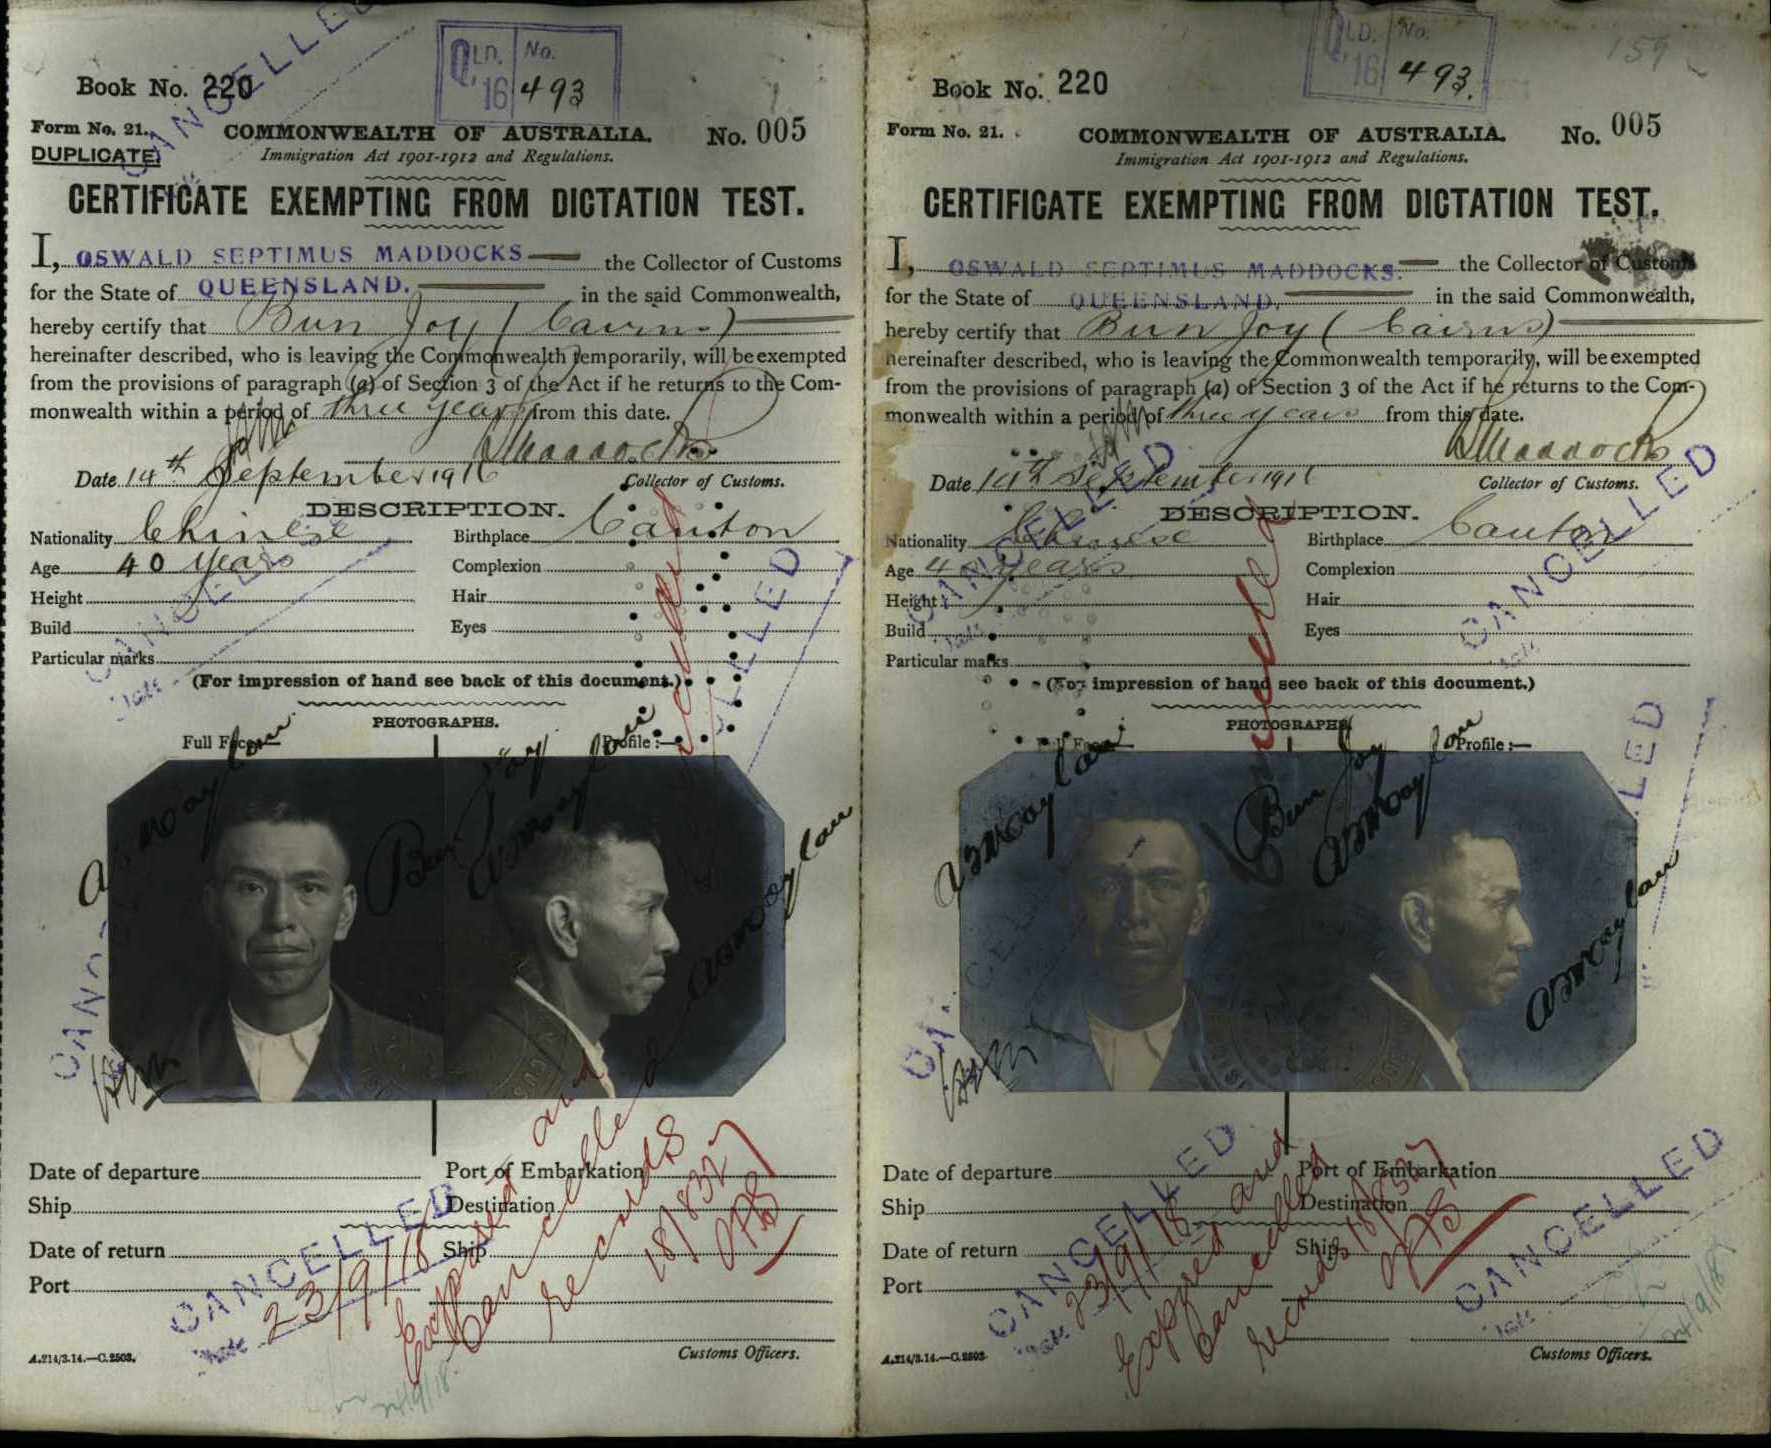 CANCELLED
QLD. No.
'16 493
Book No. 220
Form No. 21. COMMONWEALTH OF AUSTRALIA. No. 005
DUPLICATE.
Immigration Act 1901-1912 and Regulations.
CERTIFICATE EXEMPTING FROM DICTATION TEST.
I, OSWALD SEPTIMUS MADDOCKS the Collector of Customs
for the State of QUEENSLAND. in the said Commonwealth,
hereby certify that Bun Joy (Cairns)
hereinafter described, who is leaving the Commonwealth temporarily, will be exempted
from the provisions of paragraph (a) of Section 3 of the Act if he returns to the Com-
monwealth within a period of three years from this date.
Maddocks
Date 14th September 1916 Collector of Customs.
DESCRIPTION.
Nationality Chinese Birthplace Canton
Age 40 years Complexion
Height Hair
Build Eyes
Particular marks
(For impression of hand see back of this document.)
CANCELLED
Date
Cancelled
PHOTOGRAPHS.
Full Face:— Profile:—
Bun Joy
Date of departure Port of Embarkation
Ship Destination
Date of return Ship
Port
CANCELLED
Date 23/9/18
Expired and
Cancelled
records
24/9/18
A.214/3.14.—C.2503. Customs Officers.
159
QLD. No.
'16 493.
Book No. 220
Form No. 21. COMMONWEALTH OF AUSTRALIA. No. 005
Immigration Act 1901-1912 and Regulations.
CERTIFICATE EXEMPTING FROM DICTATION TEST.
I, OSWALD SEPTIMUS MADDOCKS. the Collector of Customs
for the State of QUEENSLAND. in the said Commonwealth,
hereby certify that Bun Joy (Cairns)
hereinafter described, who is leaving the Commonwealth temporarily, will be exempted
from the provisions of paragraph (a) of Section 3 of the Act if he returns to the Com-
monwealth within a period of three years from this date.
Maddocks
Date 14th September 1916 Collector of Customs.
DESCRIPTION.
Nationality Chinese Birthplace Canton
Age 40 years Complexion
Height Hair
Build Eyes
Particular marks
(For impression of hand see back of this document.)
CANCELLED
CANCELLED
Date
Cancelled
PHOTOGRAPHS
Full Face:— Profile:—
Bun Joy
Date of departure Port of Embarkation
Ship Destination
Date of return Ship
Port
CANCELLED
Date 23/9/18
Expired and
Cancelled
records
CANCELLED
Date
24/9/18
A.214/3.14.—C.2503. Customs Officers.